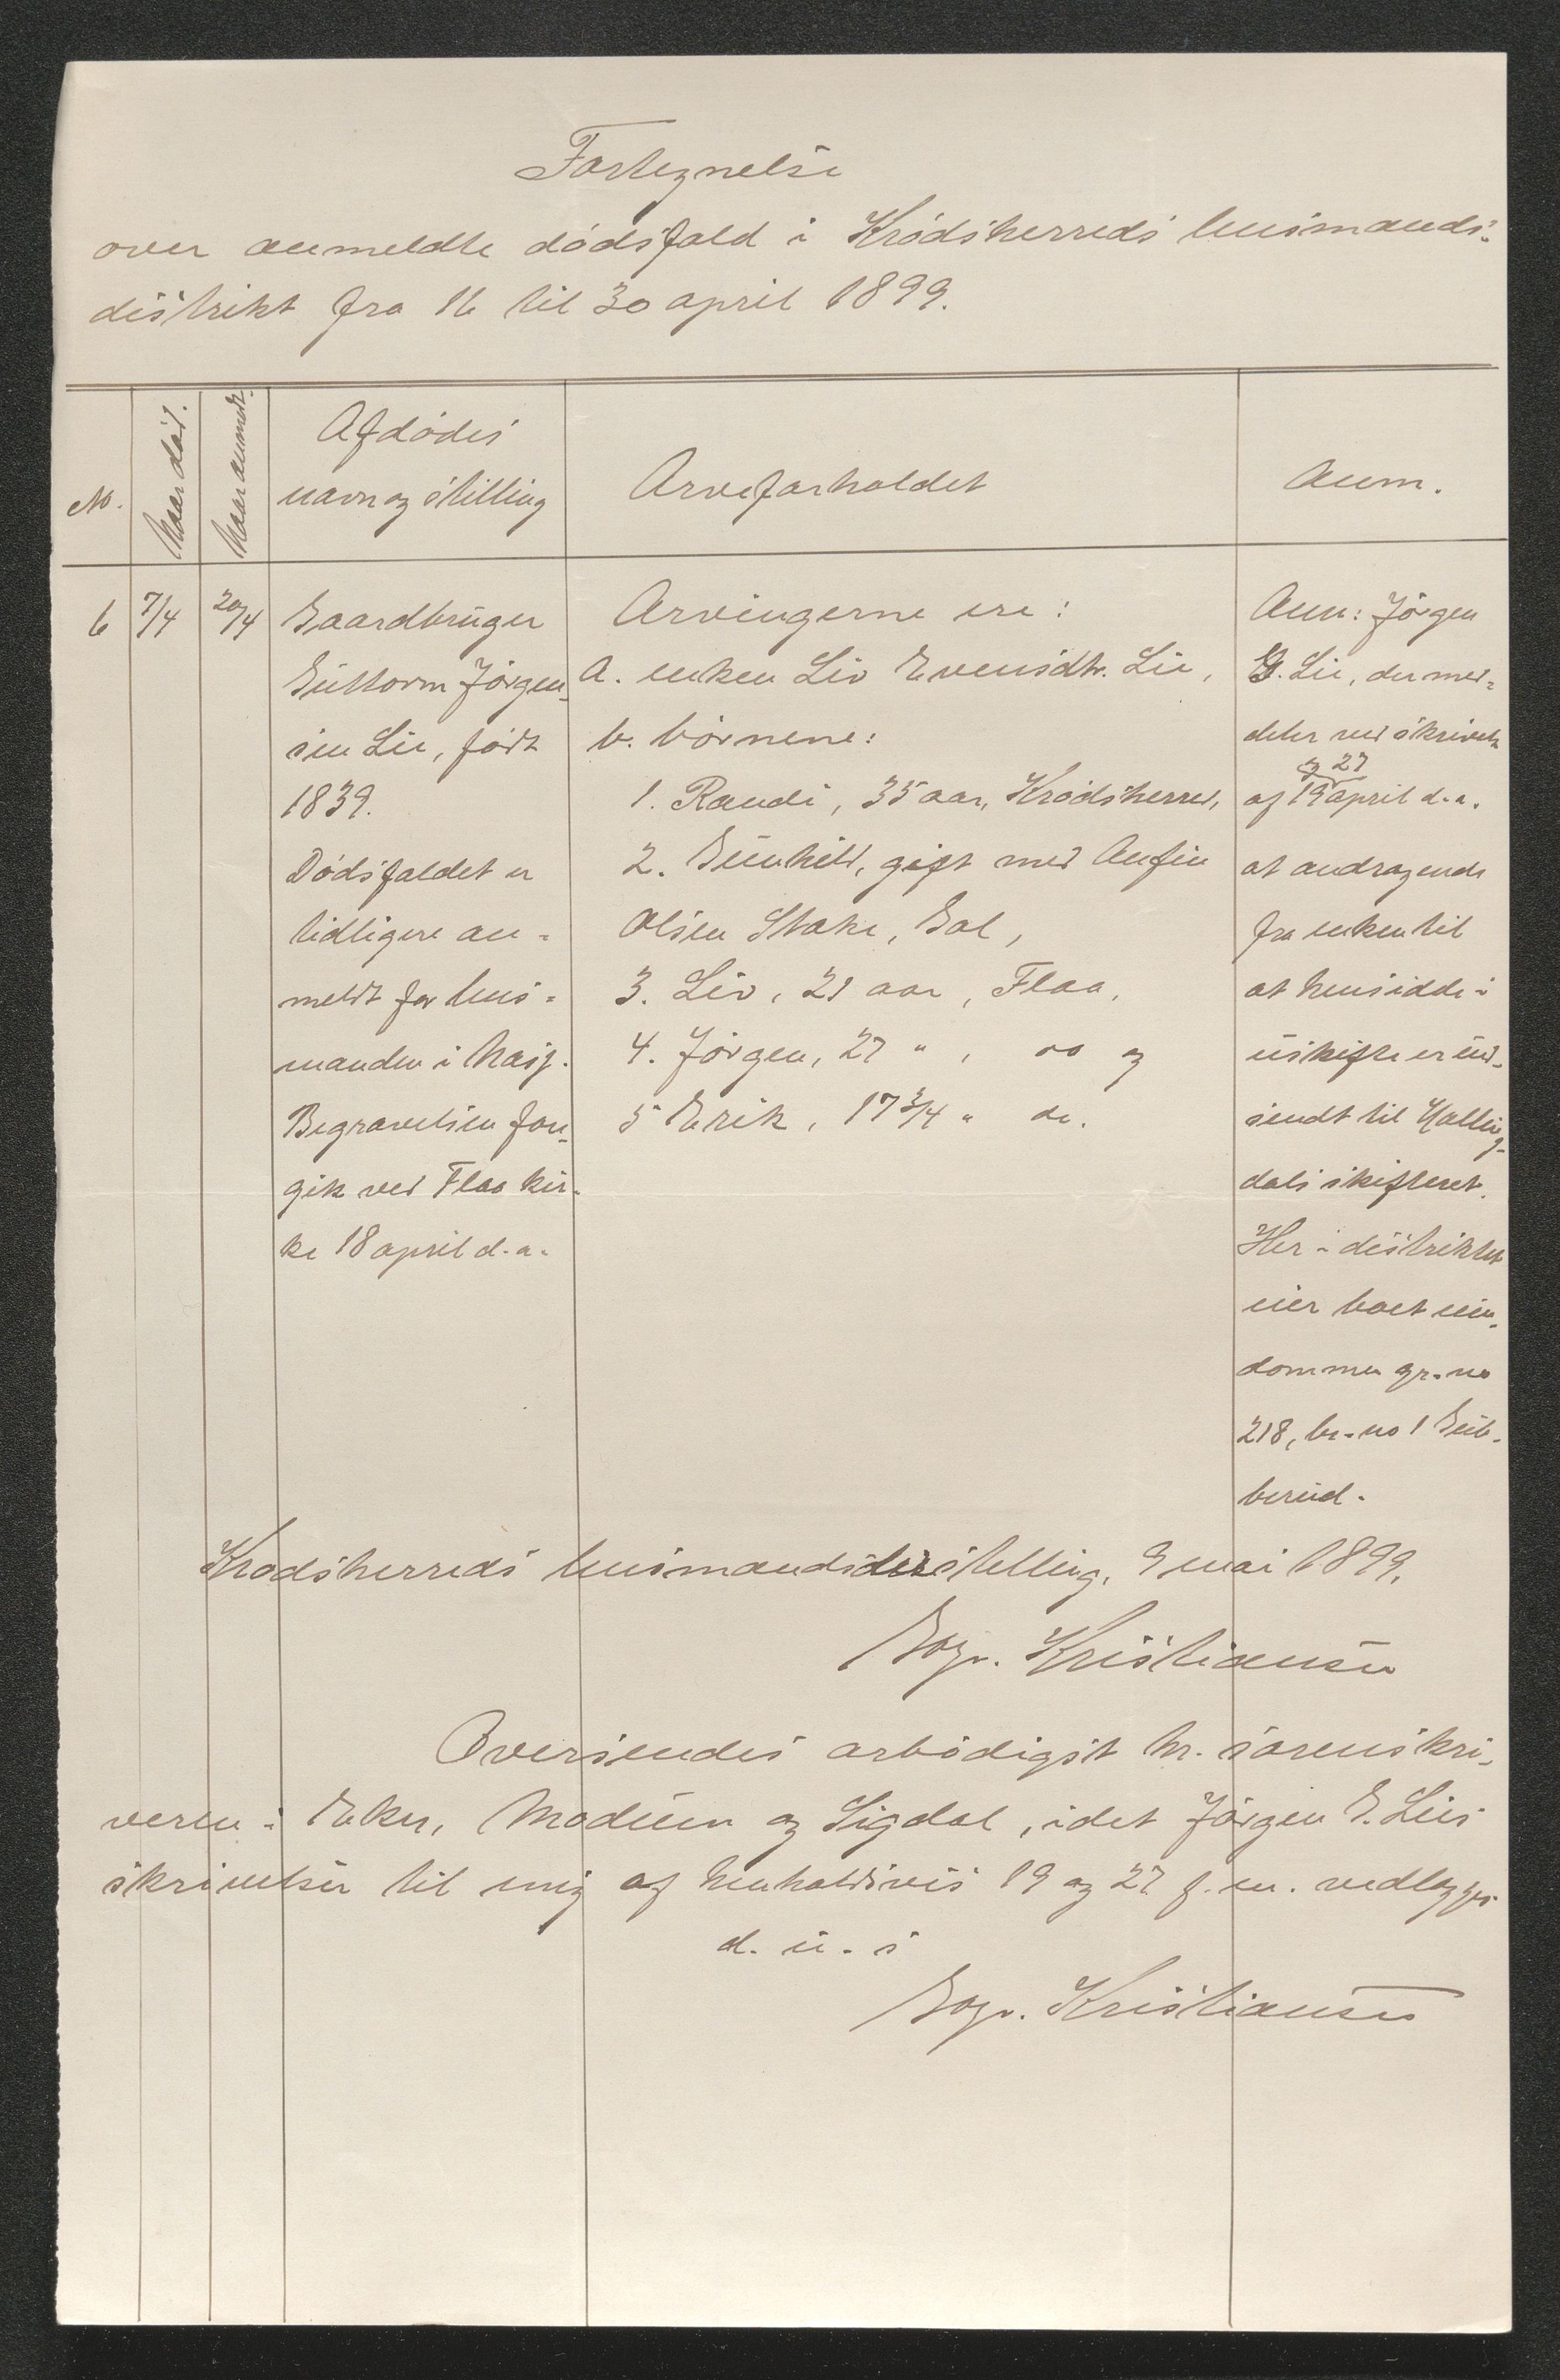 Fortegnelse
over anmeldte dödsfald i Krödsherreds lensmands-
distrikt fra 16 til 30 april 1899.
No.
Naar död.
Naar anmeldt.
Afdödes
navn og stilling
Arveforholdet
Anm.
6
7/4
20/4
Gaardbruger
Guttorm Jörgen-
sen Lie, født
1839.
Dödsfaldet er
tidligere an-
meldt for lens-
manden i Næs.
Begravelsen fore-
gik ved Flaa kir-
ke 18 april d.a.
Arvingerne ere:
a. enken Liv Evensdtr. Lie,
b. börnene:
1. Randi, 35 aar, Krödsherred,
2. Gunhild, gift med Anfin
Olsen Stake, Gol,
3. Liv, 29 aar, Flaa,
4. Jörgen, 27 " , do og
5 Erik, 17 3/4 " do.
Anm: Jörgen
G. Lie, der med-
deler ved skrivelse
og 27
af 19 april d.a.
at andragende
fra enken til
at hensidde i
uskifte er ind-
sendt til Halling-
dals skifteret.
Her i distriktet
eier boet eien-
dommen gr.no
218, br.no 1 Gub-
berud.
Krödsherreds lensmandsbestilling, 9 mai 1899.
Kristiansen
Oversendes ærbödigst hr. sorenskri-
veren i Eker, Modum og Sigdal, idet Jörgen G. Lies
skrivelser til mig af henholdsvis 19 og 27 f.m. vedlægges
d. u. s
Kristiansen